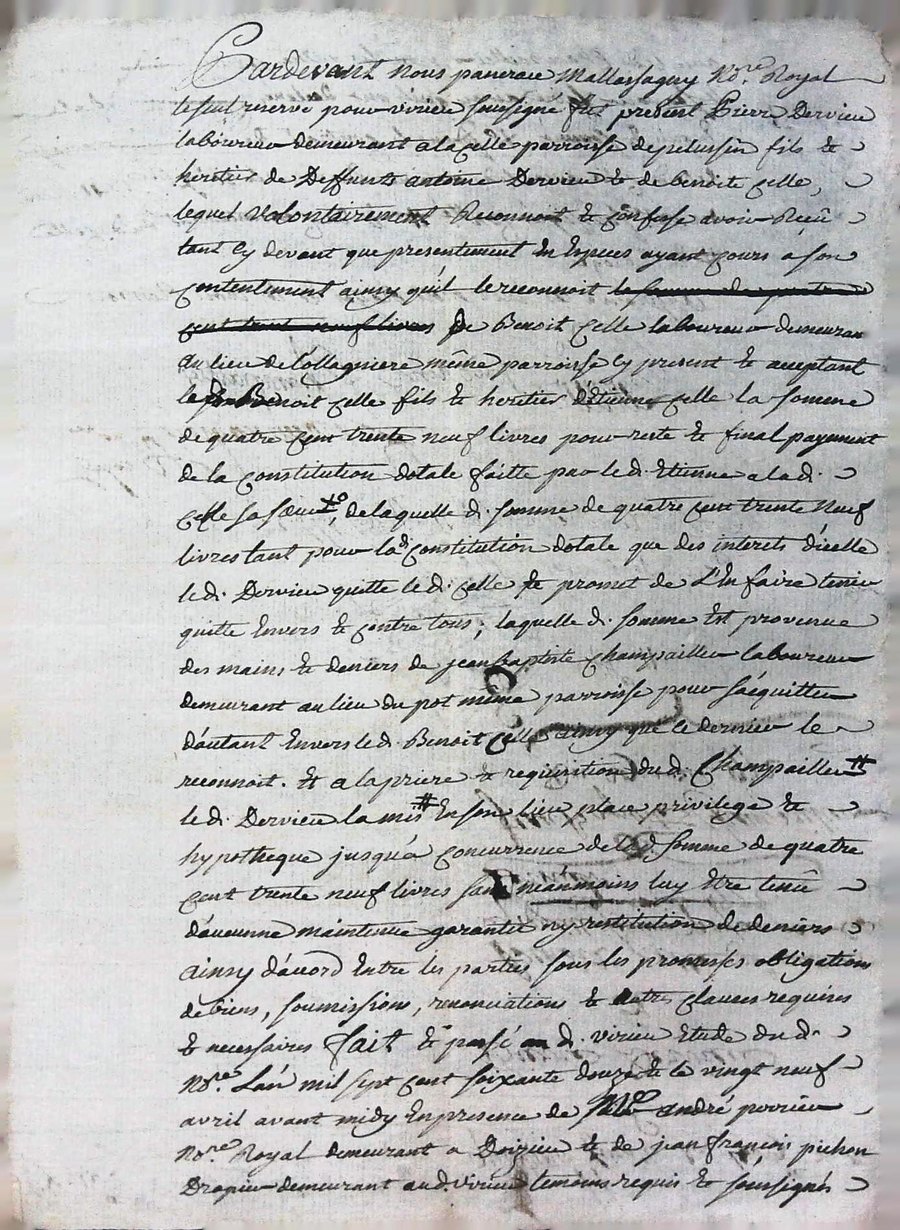 Pardevant nous pancrace Mallassagny No.re Royal
le seul reservé pour virieu soussigné fut présent Pierre Dervieu
laboureur demeurant a la celle parroisse de pelussin fils &
heritier de Deffunts antoine Dervieu & de benoite celle,
lequel volontairement Reconnoit & confesse avoir Receû
tant cy devant que presentement En Especes ayant cours a son
contentement ainsy qu'il le reconnoit la somme de quatre
cent trente neuf livres de Benoit celle laboureur demeurant
au lieu de Collagniere même parroisse cy present & acceptant
le Benoit celle fils & heritier d'Etienne celle la somme
de quatre cent trente neuf livres pour reste & final payement
de la constitution dotale faitte par le d. Etienne a la d.
celle sa sœur, de laquelle d. somme de quatre cent trente neuf
livres tant pour la d. constitution dotale que des interets d'icelle
le d. Dervieu quitte le d. celle & promet de L'En faire tenir
quitte Envers & contre tous; laquelle d. somme Est provenue
des mains & deniers de jean baptiste champailler laboureur
demeurant au lieu du pot même parroisse pour s'acquitter
d'autant Envers le d. Benoit celle ainsy que le dernier le
reconnoit. Et a la priere & requisition du d. Champailler #
le d. Dervieu la mis # En son lieu place privilege &
hypotheque jusqu'a concurrence de la d. somme de quatre
cent trente neuf livres sans neanmoins luy Etre tenû
d'aucunne maintenue garantie ny restitution de deniers
ainsy d'acord Entre les parties sous les promesses obligations
de biens, soumissions, renonciations & autres clauses requises
& necessaires fait & passé au d. virieu Etude du d.
No.re L'an mil sept cent soixante douze & le vingt neuf
avril avant midy En presence de M.e andré perrier
No.re Royal demeurant a Doizieu & de jean françois pichon
Drapier demeurant aud. virieu temoins requis & soussignés